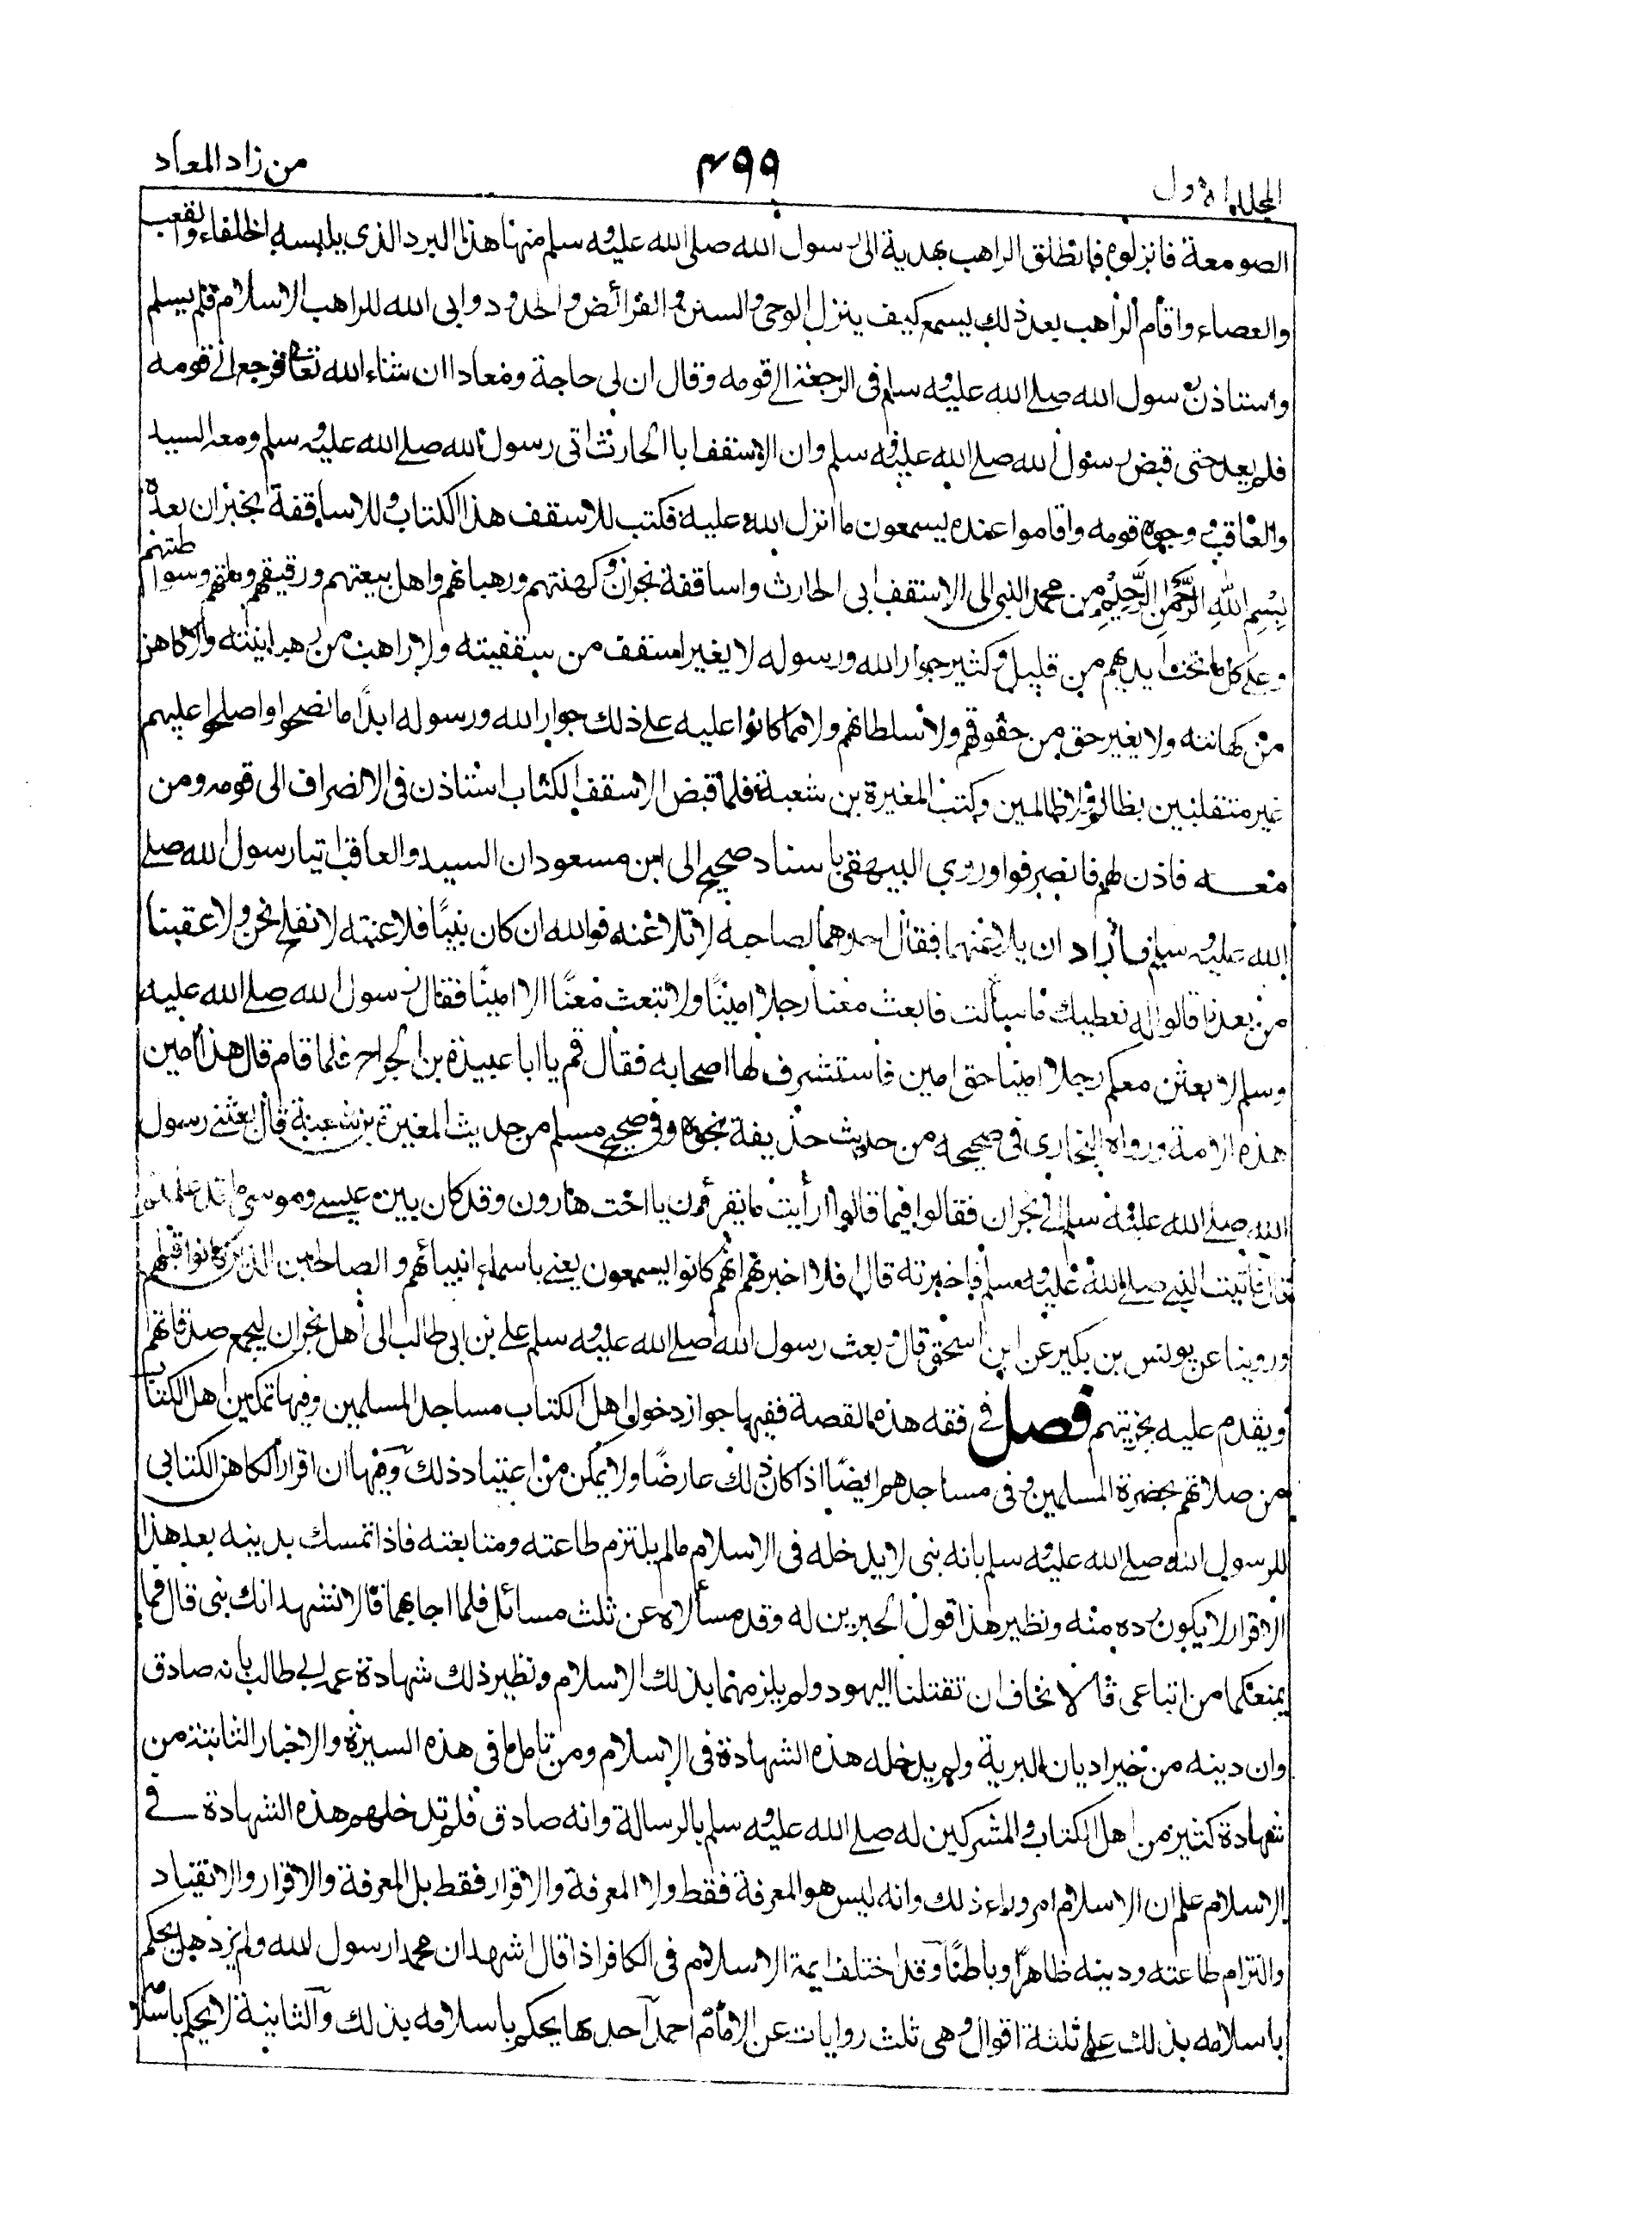 المجلد الاول
٤٩٩
من زاد المعاد
الصومعة فانزلوه فانطلق الراهب بهدية الى رسول الله صلى الله عليه وسلم منها هذا البرد الذى يلبسه الخلفاء والقعب
والعصاء واقام الراهب بعد ذلك يسمع كيف ينزل الوحى والسنن والفرائض والحدود وابى الله للراهب الاسلام فلم يسلم
واستاذن رسول الله صلے الله عليه وسلم فى الرجعة الے قومه وقال ان لى حاجة ومعادا ان شاء الله تعالى فرجع الى قومه
فلم يعد حتى قبض رسول الله صلے الله عليه وسلم وان الاسقف ابا الحارث اتى رسول الله صلے الله عليه وسلم ومعه السيد
والعاقب ووجوه قومه واقاموا عنده يسمعون ما انزل الله عليه فكتب للاسقف هذا الكتاب وللاساقفة بنجران بعده
بِسْمِ اللهِ الرَّحْمٰنِ الرَّحِيْمِ من محمد النبى الى الاسقف ابى الحارث واساقفة نجران وكهنتهم ورهبانهم واهل بيعتهم ورقيقهم وملتهم وسواطتهم
وعلے كل ما تحت ايديهم من قليل وكثير جوار الله ورسوله لا يغير اسقف من سقفيته ولا راهب من رهبانيته ولا كاهن
من كهانته ولا يغير حق من حقوقهم ولا سلطانهم ولا مما كانوا عليه علے ذلك جوار الله ورسوله ابدًا ما نصحوا واصلحوا عليهم
غير متقلبين بظالم ولا ظالمين وكتب المغيرة بن شعبة فلما قبض الاسقف الكتاب استاذن فى الانصراف الى قومه ومن
معه فاذن لهم فانصرفوا وروى البيهقى باسناد صحيح الى ابن مسعود ان السيد والعاقب اتيا رسول الله صلے
الله عليه وسلم فاراد ان يلاعنهما فقال احدهما لصاحبه لا تلاعنه فوالله ان كان نبيًا فلاعنته لا نفلح نحن ولا عقبنا
من بعدنا قالوا له نعطيك ما سألت فابعث معنا رجلا امينًا ولا تبعث معنا الا امينًا فقال رسول الله صلے الله عليه
وسلم لابعثن معكم رجلا امينا حق امين فاستشرف لها اصحابه فقال قم يا ابا عبيدة بن الجراح فلما قام قال هذا امين
هذه الامة ورواه البخارى فى صحيحه من حديث حذيفة بنحوه وفى صحيح مسلم من حديث المغيرة بن شعبة قال بعثنے رسول
الله صلے الله عليه وسلم الى نجران فقالوا فيما قالوا ارأيت ما تقرءون يا اخت هارون وقد كان بين عيسے وموسى ما قد علمتم
قال فاتيت النبے صلے الله عليه وسلم فاخبرته قال افلا اخبرتهم انهم كانوا يسمعون يعنے باسماء انبيائهم والصالحين الذين كانوا قبلهم
وروينا عن يونس بن بكير عن ابن اسحق قال وبعث رسول الله صلے الله عليه وسلم علے بن ابى طالب الى اهل نجران ليجمع صدقاتهم
ويقدم عليه بجزيتهم فصل فى فقه هذه القصة ففيها جواز دخول اهل الكتاب مساجد المسلمين وفيها تمكين اهل الكتاب
من صلاتهم بحضرة المسلمين وفى مساجدهم ايضًا اذا كان ذلك عارضًا ولا يمكن من اعتياد ذلك ومنها ان اقرار الكاهن الكتابى
للرسول الله صلے الله عليه وسلم بانه نبى لا يدخله فى الاسلام مالم يلتزم طاعته ومتابعته فاذا تمسك بدينه بعد هذا
الاقرار لا يكون ردة منه ونظير هذا قول الحبرين له وقد سألاه عن ثلث مسائل فلما اجابهما قالا نشهد انك نبى قال فما
يمنعكما من اتباعى قالا نخاف ان تقتلنا اليهود ولم يلزمهما بذلك الاسلام ونظير ذلك شهادة عمه ابى طالب بانه صادق
وان دينه من خير اديان البرية ولم يدخله هذه الشهادة فى الاسلام ومن تامل ما فى هذه السيرة والاخبار الثابتة من
شهادة كثير من اهل الكتاب والمشركين له صلے الله عليه وسلم بالرسالة وانه صادق فلم تدخلهم هذه الشهادة فے
الاسلام علم ان الاسلام امر وراء ذلك وانه ليس هو المعرفة فقط ولا المعرفة والاقرار فقط بل المعرفة والاقرار والانقياد
والتزام طاعته ودينه ظاهرًا وباطنًا وقد اختلف ايمة الاسلام فى الكافر اذا قال اشهد ان محمدا رسول الله ولم يزد هل يحكم
باسلامه بذلك علے ثلثة اقوال وهى ثلث روايات عن الامام احمد احدىها يحكم باسلامه بذلك والثانية لا يحكم باسلامه